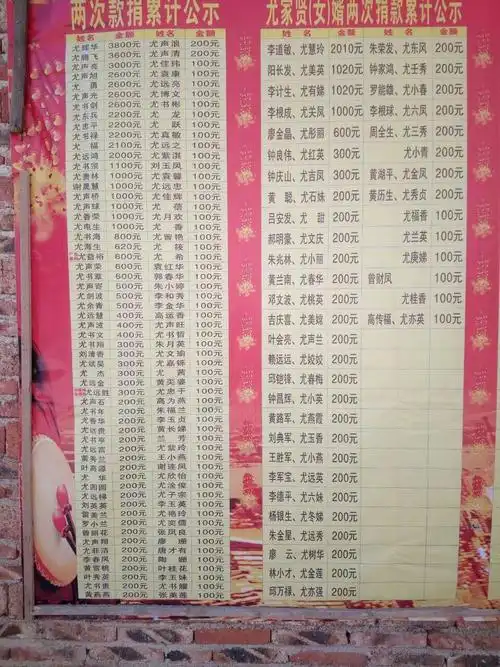 两次款捐累计公示
姓名 金额 姓名 金额
尤辉华 3800元 尤声浪 200元
尤腾飞 3600元 尤声清 200元
尤声亮 3000元 尤佳玮 100元
尤声旭 2600元 尤袁康 100元
尤勇 2600元 尤远亮 100元
尤声光 2600元 尤博文 100元
尤书剑 2600元 尤书彬 100元
尤东兵 2200元 尤龙 100元
尤志平 2200元 尤跃 100元
尤书禄 2200元 尤真敏 100元
尤福 2100元 尤远之 100元
尤远鸿 2000元 尤紫淇 100元
尤书宗 1100元 刘玉凤 100元
尤贵林 1000元 尤袁馨 100元
谢晟慧 1000元 尤远忠 100元
尤声桥 1000元 尤佳辉 100元
尤声球 1000元 尤蓓 100元
尤善荣 1000元 尤月欢 100元
尤电生 1000元 尤香 100元
尤书海 800元 尤雪艳 100元
尤海生 620元 尤筱 100元
尤益裕 600元 尤希 100元
尤声荣 600元 袁红华 100元
尤书章 600元 郭春华 100元
尤声寄 500元 朱小婷 100元
尤剑波 500元 李和秀 100元
尤余青 500元 李金华 100元
尤远慧 400元 高运香 100元
尤声波 400元 尤声旺 100元
尤书文 400元 尤书哲 100元
尤书翔 300元 朱月英 100元
刘清香 300元 尤文瑜 100元
尤斌昊 300元 尤嘉铄 100元
尤杰 300元 尤茜 100元
尤远金 300元 黄奕婆 100元
尤远胜 300元 尤忠干 100元
尤声石 200元 高为燕 100元
尤书年 200元 朱福兰 100元
尤春华 200元 李玉贞 100元
尤远贵 200元 黄长娣 100元
尤书亨 200元 兰芳 100元
尤远富 200元 尤紫玲 100元
黄秀兰 200元 王小燕 100元
叶高源 200元 谢连凤 100元
尤华 200元 尤欣怡 100元
尤圆圆 200元 尤淦俊 100元
尤远梯 200元 尤子宗 100元
刘英英 200元 李玉英 100元
雷美兰 200元 尤艳玲 100元
罗小兰 200元 尤奕儒 100元
曾丽花 200元 张凤良 100元
尤声翔 200元 廖姗 100元
尤菲清 200元 唐才有 100元
李春凤 200元 陶姗 100元
黄雪桃 200元 叶桂花 100元
叶秀英 200元 李玉妹 100元
尤书贵 200元 尤书耀 100元
黄燕燕 200元 张美莲 100元
尤家贤(女)婿两次捐款累计公示
姓名 金额 姓名 金额
李道敏、尤慧玲 2010元 朱荣发、尤东风 200元
阳长发、尤美英 1020元 钟家鸿、尤壬秀 200元
李计生、尤有娣 1020元 罗能雄、尤小春 200元
李根成、尤关凤 1000元 李根球、尤六凤 200元
廖金晶、尤彤丽 600元 周全生、尤三秀 200元
钟良伟、尤红英 300元 尤小青 200元
钟庆山、尤吉凤 300元 黄湖平、尤金凤 200元
黄聪、尤石妹 200元 黄历生、尤秀贞 200元
吕安发、尤甜 200元 尤福香 100元
郝明豪、尤文庆 200元 尤兰英 100元
朱兆林、尤小丽 200元 尤庚娣 100元
黄兰南、尤春华 200元 曾财凤 100元
邓文波、尤桃英 200元 尤桂香 100元
吉庆喜、尤美婉 200元 高传福、尤亦英 100元
叶金亮、尤声兰 200元
赖远远、尤姣姣 200元
邱铠锋、尤春梅 200元
钟昌辉、尤小英 200元
黄路军、尤燕霞 200元
刘典军、尤玉香 200元
王胜军、尤小燕 200元
李军宝、尤远英 200元
李德平、尤六妹 200元
杨银生、尤冬娣 200元
朱金星、尤远秀 200元
廖云、尤树华 200元
林小才、尤金莲 200元
邱万禄、尤亦强 200元